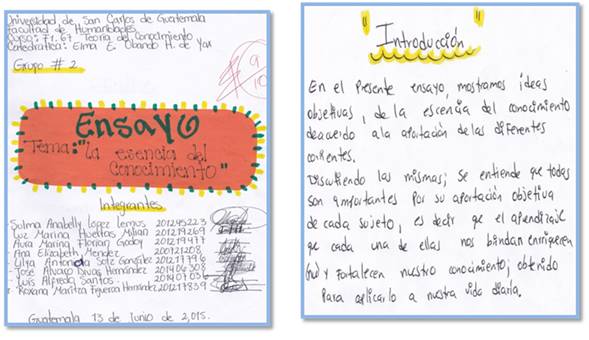 Universidad de San Carlos de Guatemala
Facultad de Humanidades
Curso: Fi.67 Teoria del Conocimiento
Catedratica: Elma E. Obando H. de Yax
Grupo # 2
9
10
Ensayo
Tema: "La esencia del
Conocimiento"
Integrantes
Sulma Anabelly López Lemos 201245223
Luz Marina Huertas Milian 201219269
Aura Marina Florian Godoy 201219477
Ana Elizabeth Mendez 200721208
Lilya Antonieta Sotz González 201217796
- José Alvaro Rivas Hernández 201406308
- Luis Alfredo Santos
- Roxana Maritza Figueroa Hernández 201217859
Guatemala 13 de Junio de 2,015.
" Introducción "
En el Presente ensayo, mostramos ideas
objetivas, de la escencia del conocimiento
deacuerdo a la aportación de las diferentes
corrientes.
Discutiendo las mismas; se entiende que todas
son importantes por su aportación objetiva
de cada sujeto, es decir qe el aprendizaje
qe cada una de ellas nos brindan enriquecen
y Fortalecen nuestro conocimiento; obtenido
Para aplicarlo a nuestra vida diaria.